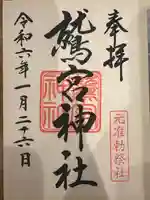 奉拝
鷲宮神社
元准勅祭社
令和六年一月二十六日